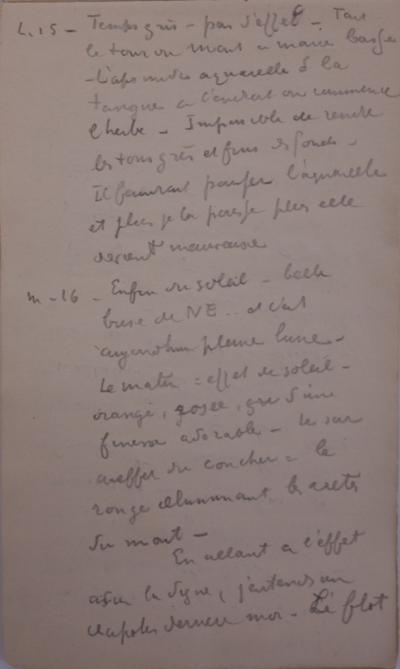 L. 15 - Temps gris - pas d'effet - Fait
le tour du Mont a marée basse
- L'après midi aquarelle à la
tangue a l'endroit ou commence
l'herbe - Impossible de rendre
les tons gris et fins des fonds -
Il faudrait pousser l'aquarelle
et plus je la pousse plus elle
devient mauvaise
M - 16 - Enfin du soleil - belle
brise de NE - et c'est
aujourd'hui pleine lune -
Le matin = effet de soleil -
orangé, rosée, gris d'une
finesse adorable - le soir
effet du coucher = le
rouge illuminant les arêtes
du mont -
En allant a l'effet
sur la digue, j'entends un
clapotis derriere moi - Le flot